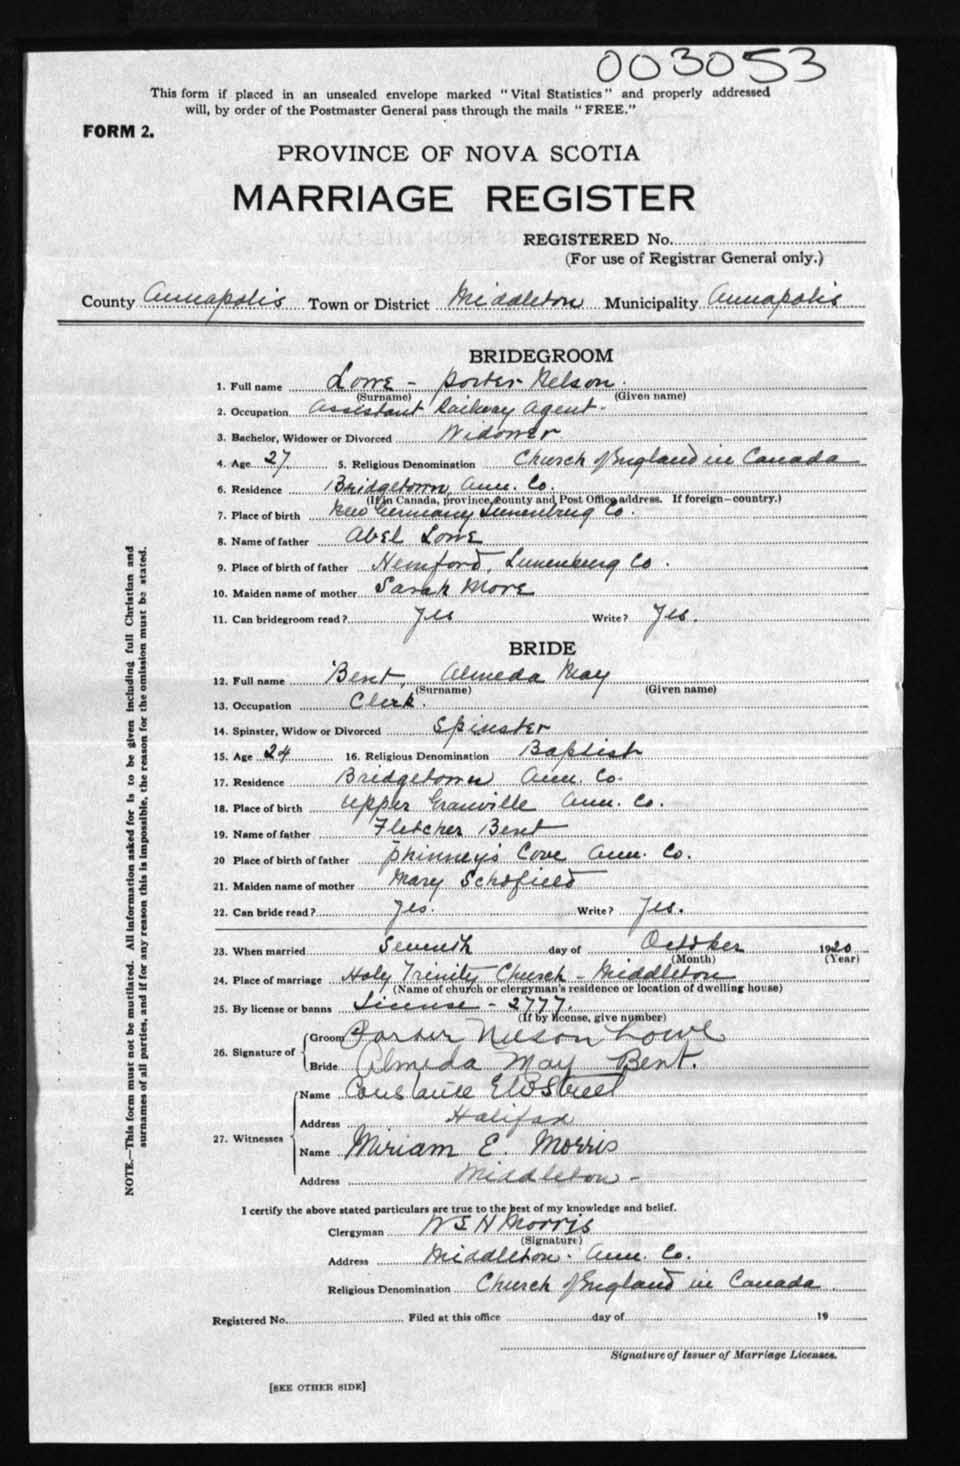 003053
This form if placed in an unsealed envelope marked "Vital Statistics" and properly addressed
will, by order of the Postmaster General pass through the mails "FREE."
FORM 2.
PROVINCE OF NOVA SCOTIA
MARRIAGE REGISTER
REGISTERED No.
(For use of Registrar General only.)
County Annapolis Town or District Middleton Municipality Annapolis
BRIDEGROOM
1. Full name Lowe - Porter Nelson.
(Surname) (Given name)
2. Occupation Assistant Railway Agent.
3. Bachelor, Widower or Divorced Widower
4. Age 27. 5. Religious Denomination Church of England in Canada
6. Residence Bridgetown, Ann. Co.
(If in Canada, province, county and Post Office address. If foreign—country.)
7. Place of birth New Germany Lunenburg Co.
8. Name of father Abel Lowe
9. Place of birth of father Hemford, Lunenburg Co.
10. Maiden name of mother Sarah More
11. Can bridegroom read? Yes Write? Yes.
BRIDE
12. Full name Bent, Almeda May
(Surname) (Given name)
13. Occupation Clerk.
14. Spinster, Widow or Divorced Spinster
15. Age 24 16. Religious Denomination Baptist
17. Residence Bridgetown Ann. Co.
18. Place of birth Upper Granville Ann. Co.
19. Name of father Fletcher Bent
20 Place of birth of father Phinney's Cove Ann. Co.
21. Maiden name of mother Mary Schofield
22. Can bride read? Yes. Write? Yes.
23. When married Seventh day of October 1920
(Month) (Year)
24. Place of marriage Holy Trinity Church - Middleton
(Name of church or clergyman's residence or location of dwelling house)
25. By license or banns License - 2777.
(If by license, give number)
26. Signature of
Groom Porter Nelson Lowe
Bride Almeda May Bent.
27. Witnesses
Name Constance Street
Address Halifax
Name Miriam E. Morris
Address Middleton -
I certify the above stated particulars are true to the best of my knowledge and belief.
Clergyman W E H Morris
(Signature)
Address Middleton. Ann. Co.
Religious Denomination Church of England in Canada.
Registered No. Filed at this office day of 19
Signature of Issuer of Marriage Licenses.
[SEE OTHER SIDE]
NOTE.—This form must not be mutilated. All information asked for is to be given including full Christian and
surnames of all parties, and if for any reason this is impossible, the reason for the omission must be stated.